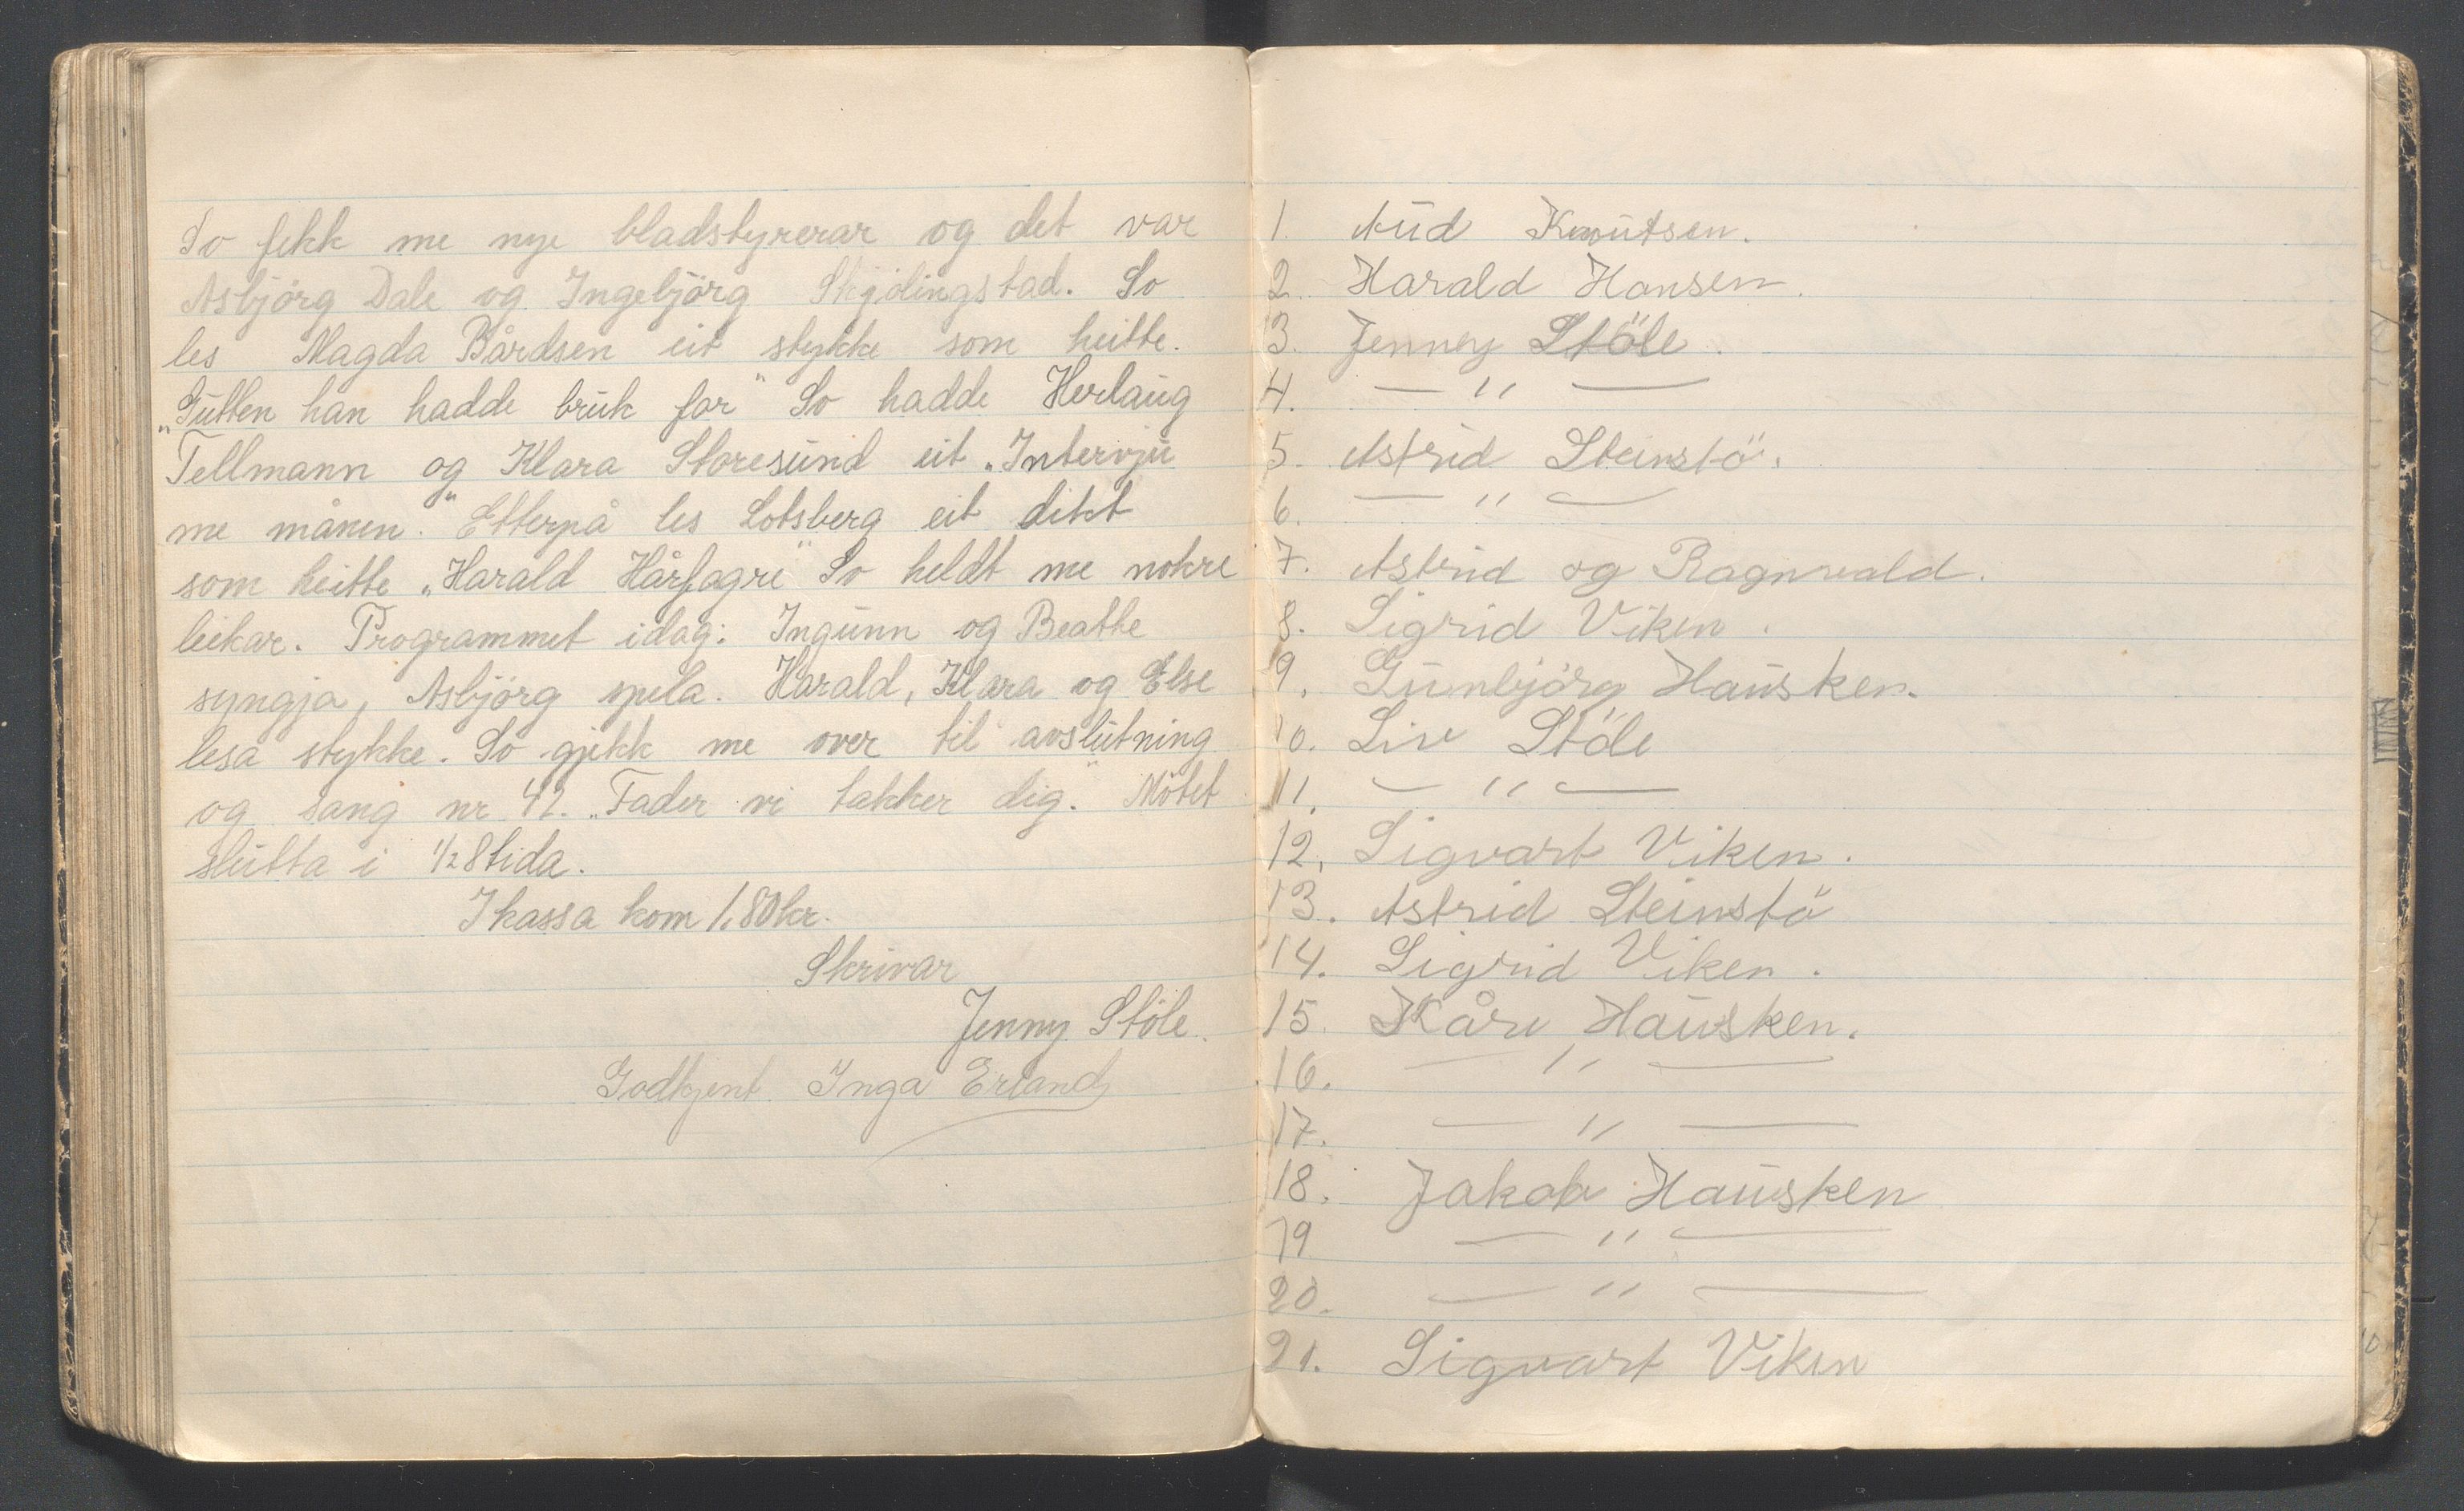 So fekk me nye bladstyrerar og det var
Asbjörg Dale og Ingebjörg Skjölingstad. So
les Magda Bårdsen eit stykke som heitte.
„Gutten han hadde bruk for" So hadde Herlaug
Tellmann og Klara Storesund eit „Intervju
me månen." Etterpå les Lotsberg eit dikt
som heitte „Harald Hårfagre" So heldt me nokre
leikar. Programmet idag: Ingunn og Beatte
syngja, Asbjörg spela. Harald, Klara og Else
lesa stykke. So gjekk me over til avslutning
og sang nr 42. „Fader vi takker dig." Mötet
slutta i ½8 tida.
I kassa kom 1,80 kr.
Skrivar
Jenny Stöle.
Godkjent Inga Erland
1. Aud Knutsen.
2. Harald Hansen.
3. Jenney Stöle.
4. — " —
5. Astrid Steinstö.
6. — " —
7. Astrid og Ragnvald.
8. Sigrid Viken.
9. Gunbjörg Hausken.
10. Liv Stöle
11. — " —
12. Sigvart Viken.
13. Astrid Steinstö
14. Sigrid Viken.
15. Kåre Hausken.
16. — " —
17. — " —
18. Jakob Hausken
19 — " —
20. — " —
21. Sigvart Viken